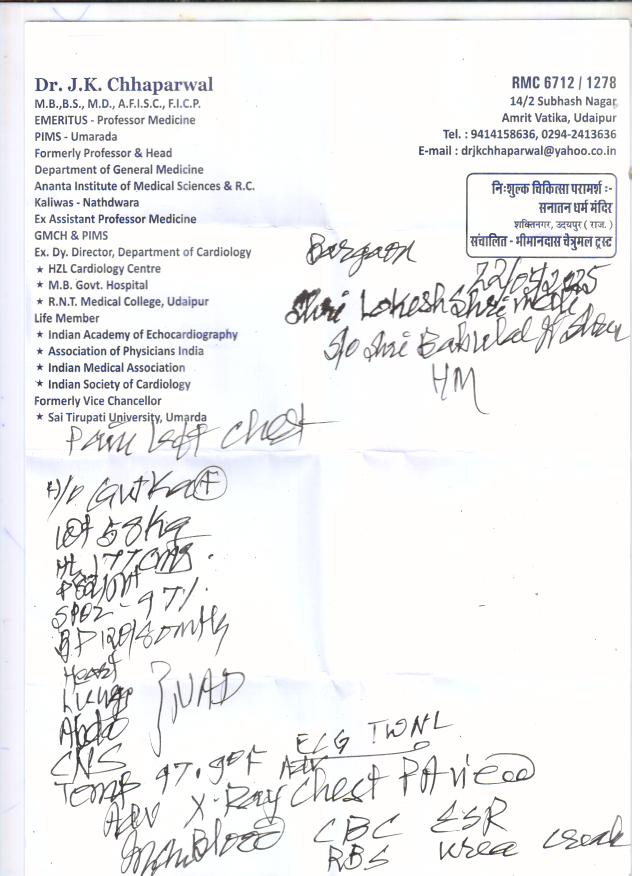 Dr. J.K. Chhaparwal
M.B.,B.S., M.D., A.F.I.S.C., F.I.C.P.
EMERITUS - Professor Medicine
PIMS - Umarada
Formerly Professor & Head
Department of General Medicine
Ananta Institute of Medical Sciences & R.C.
Kaliwas - Nathdwara
Ex Assistant Professor Medicine
GMCH & PIMS
Ex. Dy. Director, Department of Cardiology
★ HZL Cardiology Centre
★ M.B. Govt. Hospital
★ R.N.T. Medical College, Udaipur
Life Member
★ Indian Academy of Echocardiography
★ Association of Physicians India
★ Indian Medical Association
★ Indian Society of Cardiology
Formerly Vice Chancellor
★ Sai Tirupati University, Umarda
RMC 6712 / 1278
14/2 Subhash Nagar,
Amrit Vatika, Udaipur
Tel. : 9414158636, 0294-2413636
E-mail : drjkchhaparwal@yahoo.co.in
निःशुल्क चिकित्सा परामर्श :-
सनातन धर्म मंदिर
शक्तिनगर, उदयपुर ( राज. )
संचालित - भीमानदास चैत्रुमल ट्रस्ट
Bargaon
22/05/2025
Shri Lokesh Shrimali
S/o Shri Babulal Ji
HM
Pain left chest
H/o Gutka +
Wt 58 Kg
Ht 177 cms
SPO2 - 97%
BP 120/80 mmHg
Heart
Lungs
Abdo
NAD
CNS
Temp 97.9°F
ECG TWNL
Adv X-Ray Chest PA view
Blood CBC ESR
RBS Urea Creat